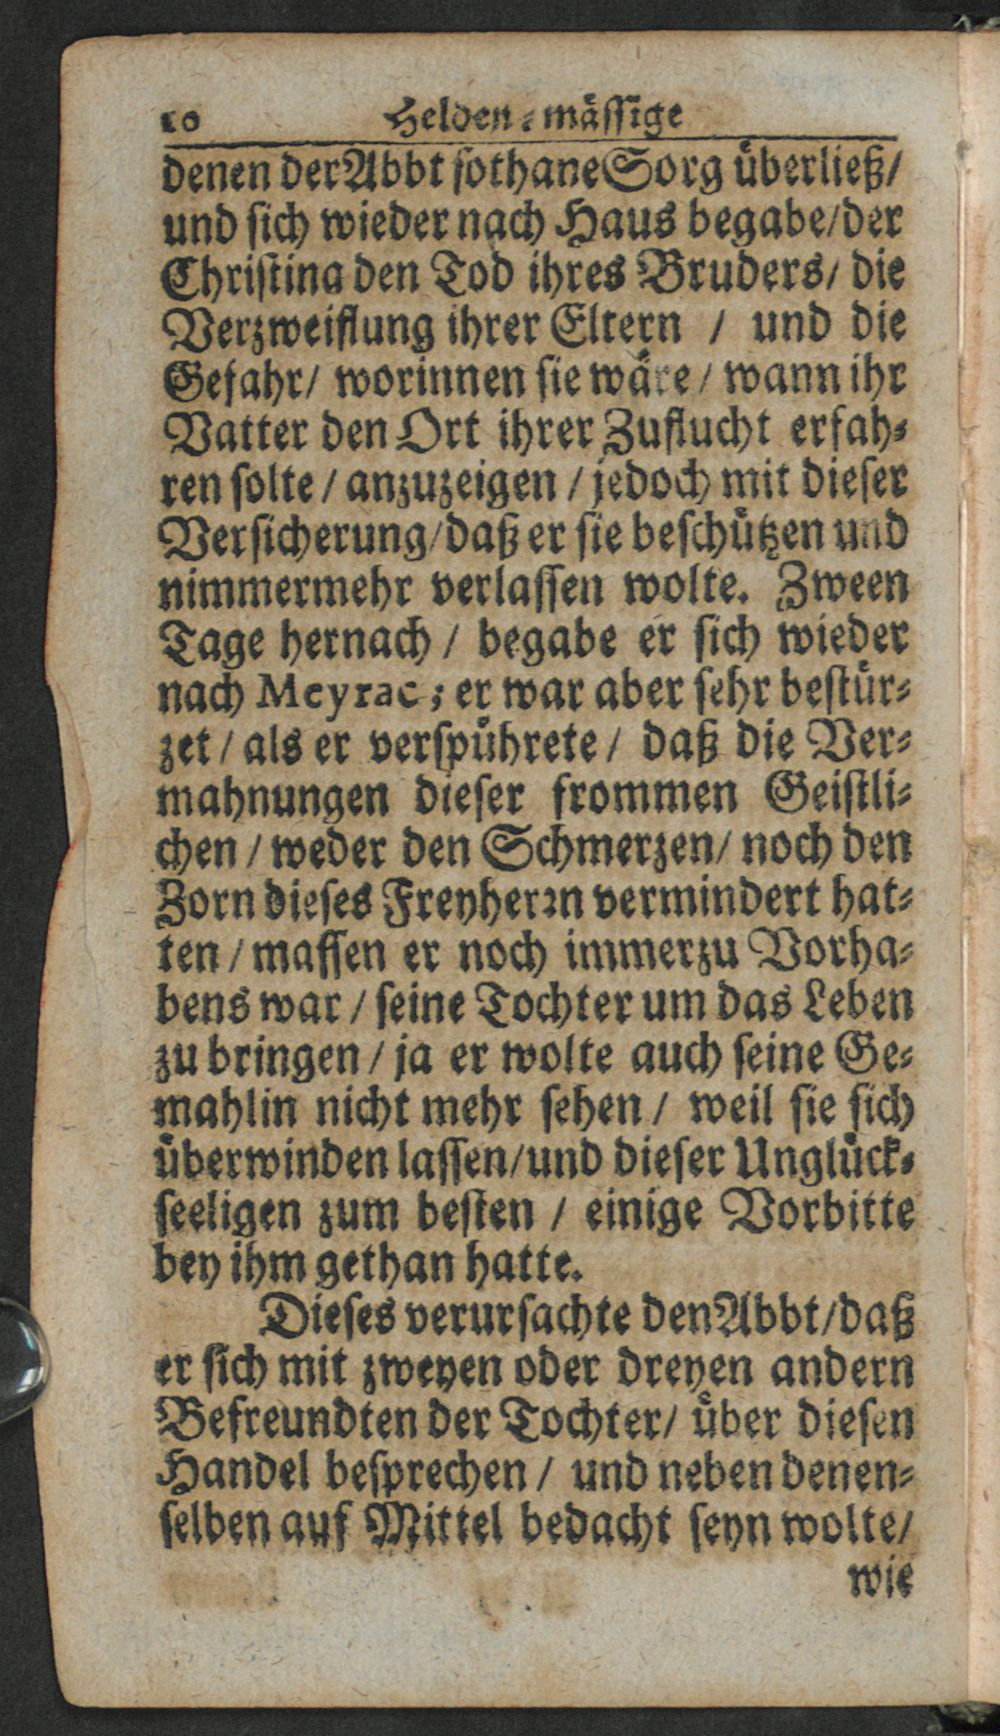 10 Helden-mässige
denen der Abbt sothane Sorg überließ/
und sich wieder nach Haus begabe/der
Christina den Tod ihres Bruders/ die
Verzweiflung ihrer Eltern / und die
Gefahr/ worinnen sie wäre/ wann ihr
Vatter den Ort ihrer Zuflucht erfah-
ren solte / anzuzeigen / jedoch mit dieser
Versicherung/daß er sie beschützen und
nimmermehr verlassen wolte. Zween
Tage hernach / begabe er sich wieder
nach Meyrac; er war aber sehr bestür-
zet / als er verspührete / daß die Ver-
mahnungen dieser frommen Geistli-
chen / weder den Schmerzen/ noch den
Zorn dieses Freyherrn vermindert hat-
ten / massen er noch immerzu Vorha-
bens war / seine Tochter um das Leben
zu bringen / ja er wolte auch seine Ge-
mahlin nicht mehr sehen / weil sie sich
überwinden lassen/und dieser Unglück-
seeligen zum besten / einige Vorbitte
bey ihm gethan hatte.
Dieses verursachte den Abbt/daß
er sich mit zweyen oder dreyen andern
Befreundten der Tochter/ über diesen
Handel besprechen / und neben denen-
selben auf Mittel bedacht seyn wolte/
wie